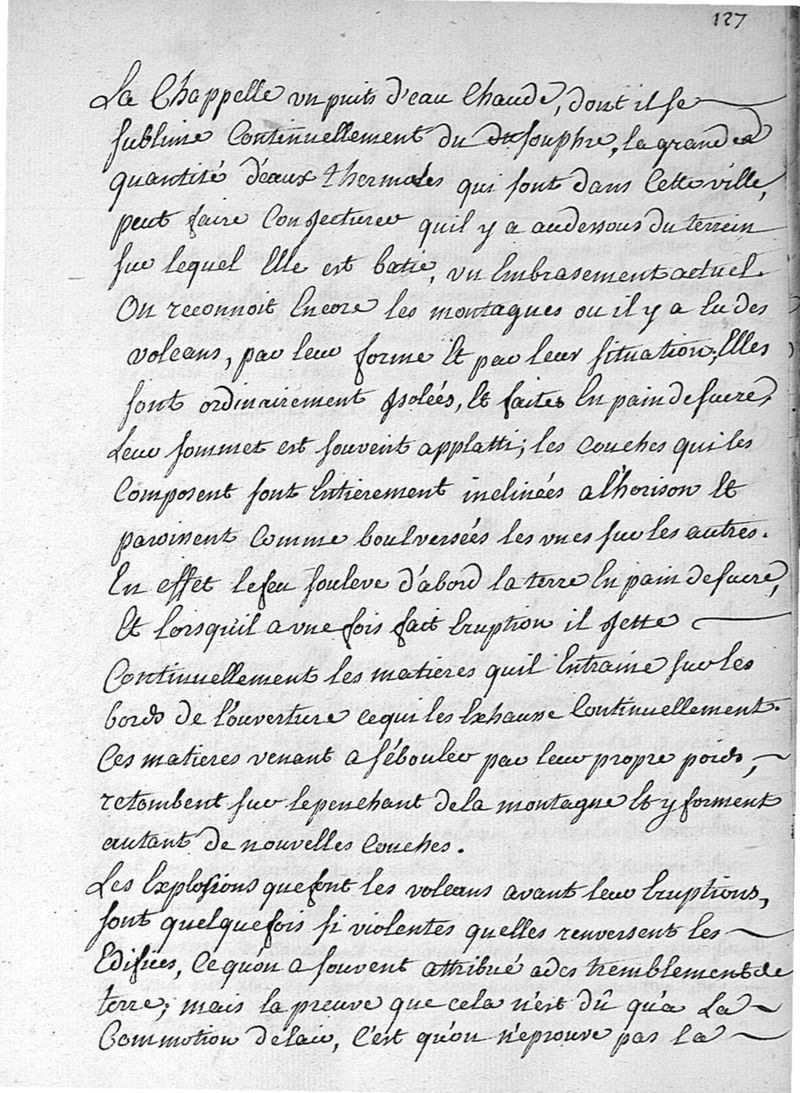 127
La Chappelle un puits d'eau Chaude, dont il se
sublime Continuellement du souphre, la grande
quantité d'eaux thermales qui sont dans Cette ville,
peut faire Conjecturer quil y a audessous du terrein
sur lequel Elle est batie, un Embrasement actuel.
On reconnoit Encore les montagnes ou il y a Eu des
volcans, par leur forme Et par leur situation, Elles
sont ordinairement Isolées, Et faites En pain de sucre,
Leur sommet est souvent applatti; les couches qui les
Composent sont Entierement inclinées a l'horison Et
paroissent Comme boulversées les unes sur les autres.
En effet le feu souleve d'abord la terre En pain de sucre,
Et lorsqu'il a une fois fait Eruption il Jette
Continuellement les matieres quil Entraine sur les
bords de l'ouverture ce qui les Exhausse Continuellement.
Ces matieres venant a s'ébouler par leur propre poids,
retombent sur le penchant de la montagne Et y forment
autant de nouvelles Couches.
Les Explosions que font les volcans avant leur Eruptions,
sont quelque fois si violentes quelles renversent les
Edifices, Ce qu'on a souvent attribué a des tremblement de
terre; mais la preuve que cela n'est dû qu'a La
Commotion de l'air, C'est qu'on n'eprouve pas la